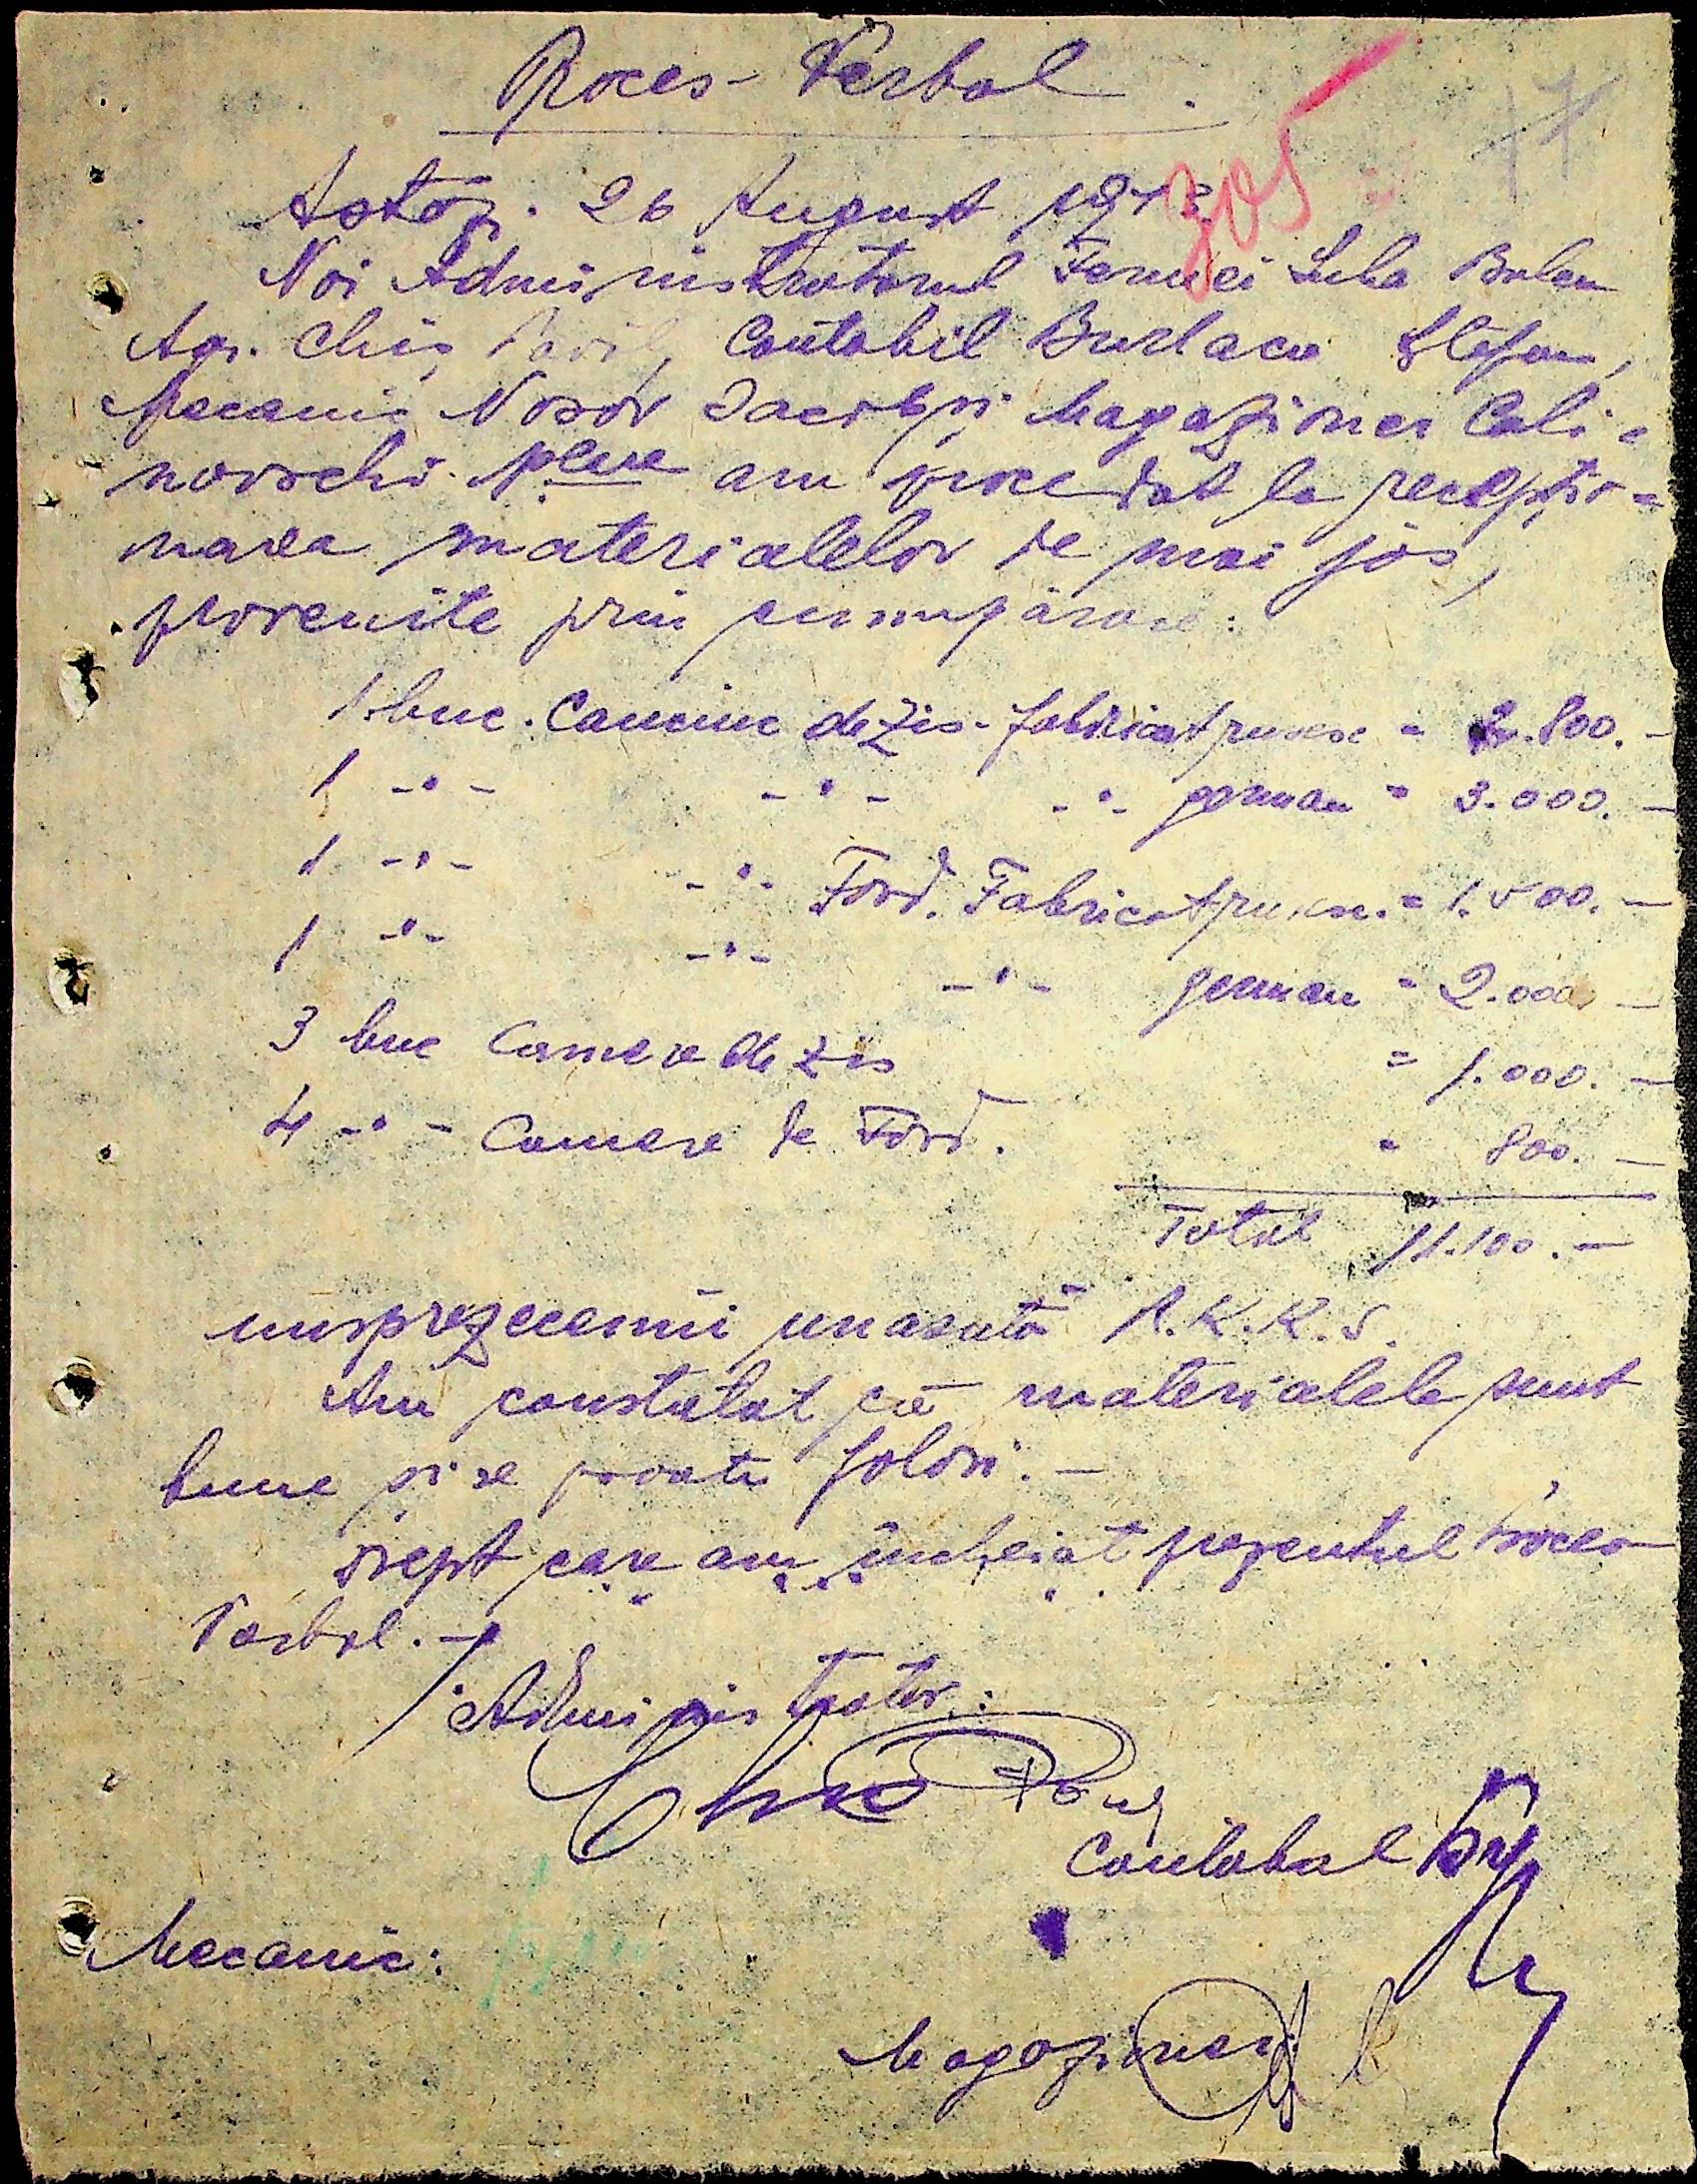 Proces-Verbal.
17
305
Astăzi. 26 August 1943
Noi Administratorul Fermei Suha Balca
Agr. Chiș Pavil, Contabil Burlacu Ștefan,
Mecanic Nosov Iacob și Magazioner Cali-
novschi am procedat la recepțio-
narea materialelor de mai jos,
provenite prin cumpărare:
1 buc. Cauciuc de Zis - fabricat rusesc = 2.800.-
1 -"- -"- -"- german = 3.000.-
1 -"- -"- Ford. Fabricat rusesc. = 1.500.-
1 -"- -"- -"- german = 2.000 -
3 buc Camere de Zis = 1.000.-
4 -"- Camere de Ford. = 800.-
Total 11.100.-
unsprezecemii unasută R.K.K.S.
Am constatat că materialele sunt
bune și se poate folosi.-
Drept care am încheiat prezentul Proces
Verbal.-
Administrator:
Contabil
Mecanic:
Magazioner: